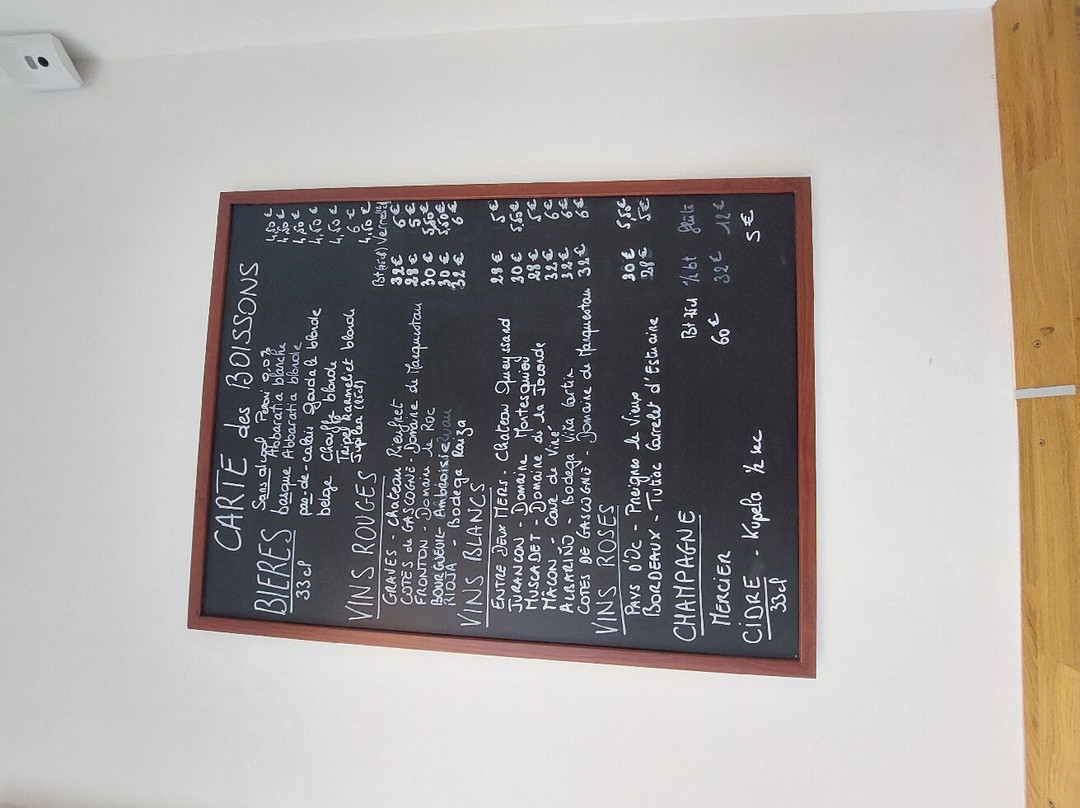 CARTE des BOISSONS
BIERES Sans alcool Peroni 0,0% 4,50 €
33 cl basque Abbaratia blanche 4,50 €
Abbaratia blonde 4,50 €
pas-de-calais Goudale blonde 4,50 €
belge Chouffe blonde 4,50 €
Tripel Karmeliet blonde 6 €
Jupiler (25cl) 4,50 €
VINS ROUGES Bt (75cl) Verre
GRAVES - Chateau Rieufret 32 € 6 €
COTES de GASCOGNE - Domaine de Marquestau 28 € 5 €
FRONTON - Domaine le Roc 30 € 5,50 €
BOURGUEUIL - Ambroisie 30 € 5,50 €
RIOJA - Bodega 32 € 6 €
VINS BLANCS
ENTRE DEUX MERS - Chateau Queyssard 28 € 5 €
JURANCON - Domaine Montesquiou 30 € 5,50 €
MUSCADET - Domaine de la Joconde 28 € 5 €
MÂCON - Cave de Viré 32 € 6 €
ALBARIÑO - Bodega Viña Cartin 32 € 6 €
COTES DE GASCOGNE - Domaine de Marquestau 32 € 6 €
VINS ROSES
PAYS D'OC - Preignes le Vieux 30 € 5,50 €
BORDEAUX - Tutiac Carrelet d'Estuaire 28 € 5 €
CHAMPAGNE Bt 75cl 1/2 bt flûte
MERCIER 60 € 32 € 12 €
CIDRE - Kupela 1/2 sec 5 €
33 cl